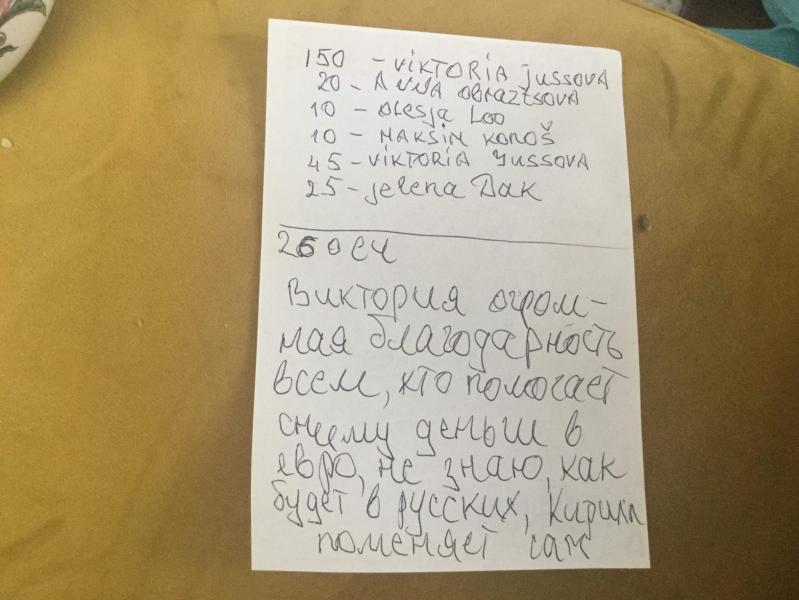 150 - VIKTORIA JUSSOVA
20 - ANNA OBRAZTSOVA
10 - OLESJA LOO
10 - MAKSIM KOROŠ
45 - VIKTORIA JUSSOVA
25 - jelena Dak
260
Виктория огром-
ная благодарность
всем, кто помогает
деньги в
евро, не знаю, как
будет в русских, Кирилл
поменяет сам